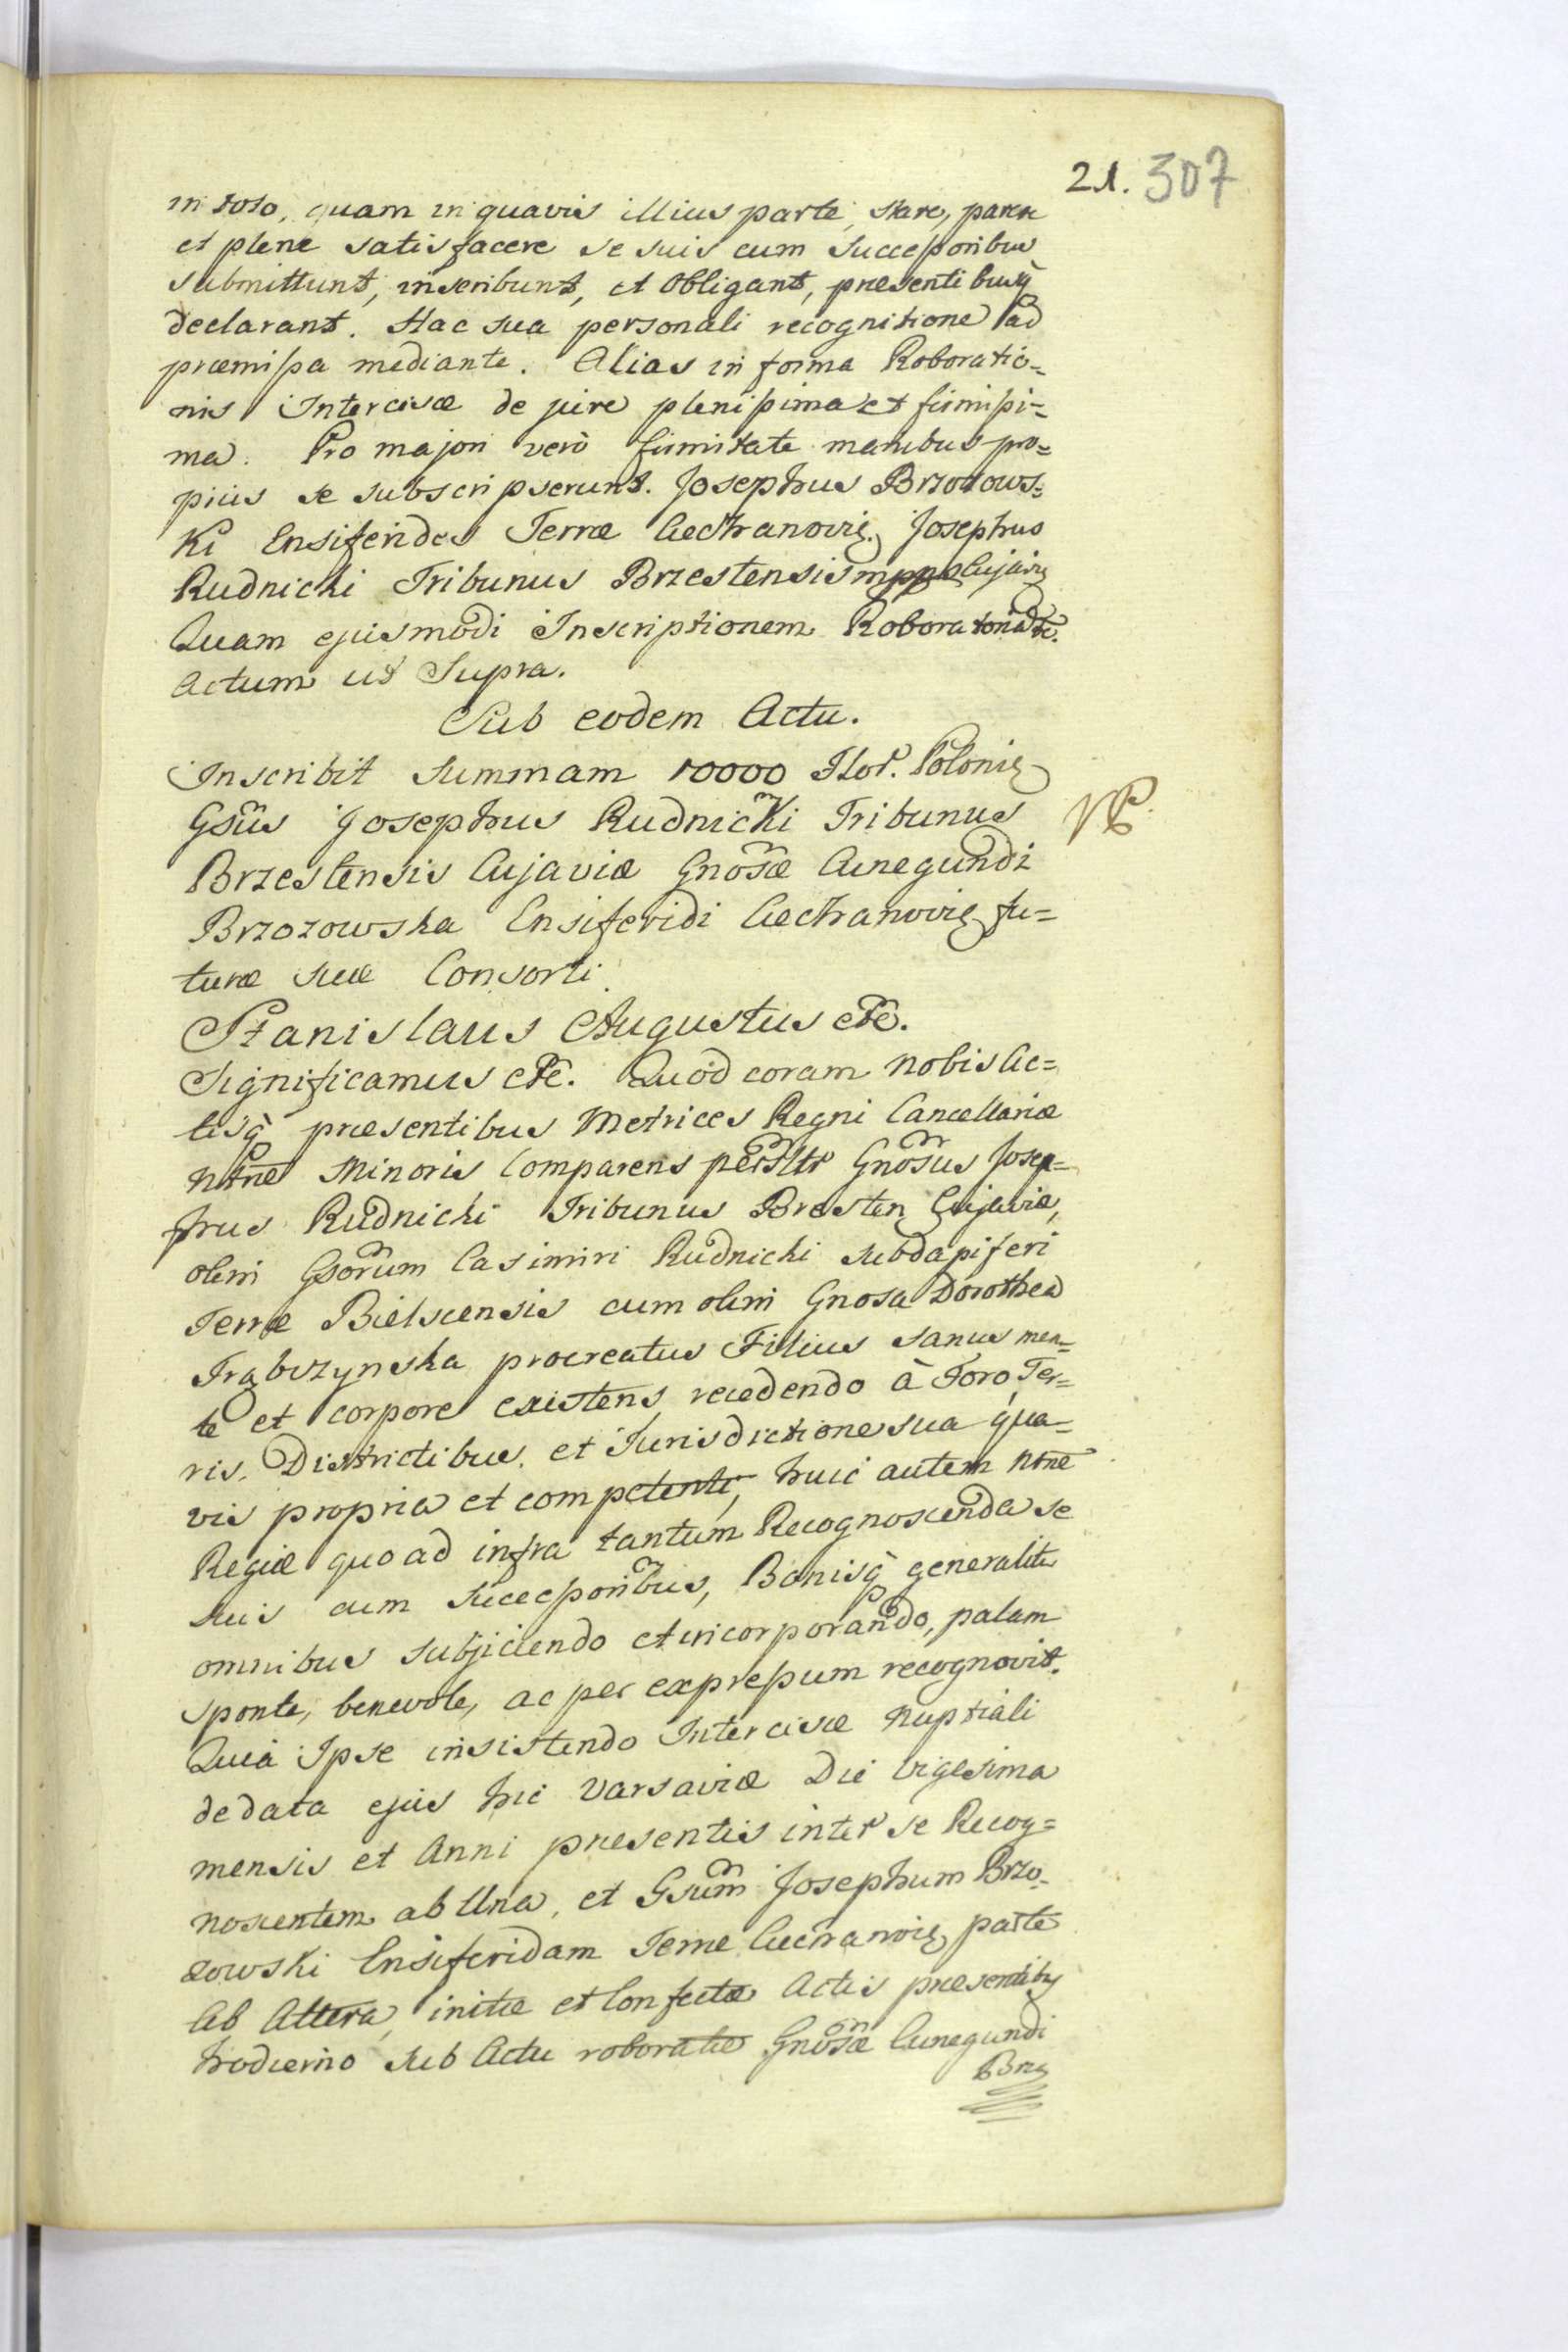 21. 307
in toto, quam in quavis illius parte, stare, parere
et plene satisfacere se suis cum Successoribus
submittunt, inscribunt, et obligant, præsentibusq̃
declarant. Hac sua personali recognitione ad
præmissa mediante. Alias in forma Roboratio=
nis Intercisæ de jure plenissima et firmissi=
ma. Pro majori verò firmitate manibus pro=
priis se subscripserunt. Josephus Brzozows=
Ki Ensiferides Terræ Ciechanovię. Josephus
Rudnicki Tribunus Brzestensis mppa Cujavię
Quam ejusmodi Inscriptionem Roboratoriã etc.
Actum ut Supra.
Sub eodem Actu.
Inscribit Summam 10000 Flor. Polonię
Gsũs Josephus Rudnicki Tribunus
Brzestensis Cujaviæ Gnõsæ Cunegundi
Brzozowska Ensiferidi Ciechanovię fu=
turæ suæ Consorti.
Stanislaus Augustus etc.
Significamus etc. Quod coram nobis Ac=
tisq̃ præsentibus Metrices Regni Cancellariæ
ntrãe Minoris Comparens persltr Gnõsus Josep=
hus Rudnicki Tribunus Bresten Cujaviæ,
olim Gsõrum Casimiri Rudnicki Subdapiferi
Terræ Bielscensis cum olim Gnosa Dorothea
Trąbczynska procreatus Filius sanus men=
te et corpore existens, recedendo à Foro, Ter=
ris, Districtibus, et Jurisdictione sua qua=
vis propria et competenti, huic autem ntræ
Regiæ quo ad infra tantum Recognoscenda se
suis cum Successoribus, Bonisq̃ generaliter
omnibus subjiciendo et incorporando, palam
sponte, benevole, ac per expressum recognovit.
Quia Ipse insistendo Intercisæ Nuptiali
de data ejus hic Varsaviæ Die Vigesima
mensis et Anni præsentis inter se Recog=
noscentem ab Una, et Gsũm Josephum Brzo=
zowski Ensiferidam Terræ Ciechanovię parte
Ab Altera, initæ et Confectæ Actis præsentibus
hodierno sub Actu roboratæ Gnõsæ Cunegundi
Brzo